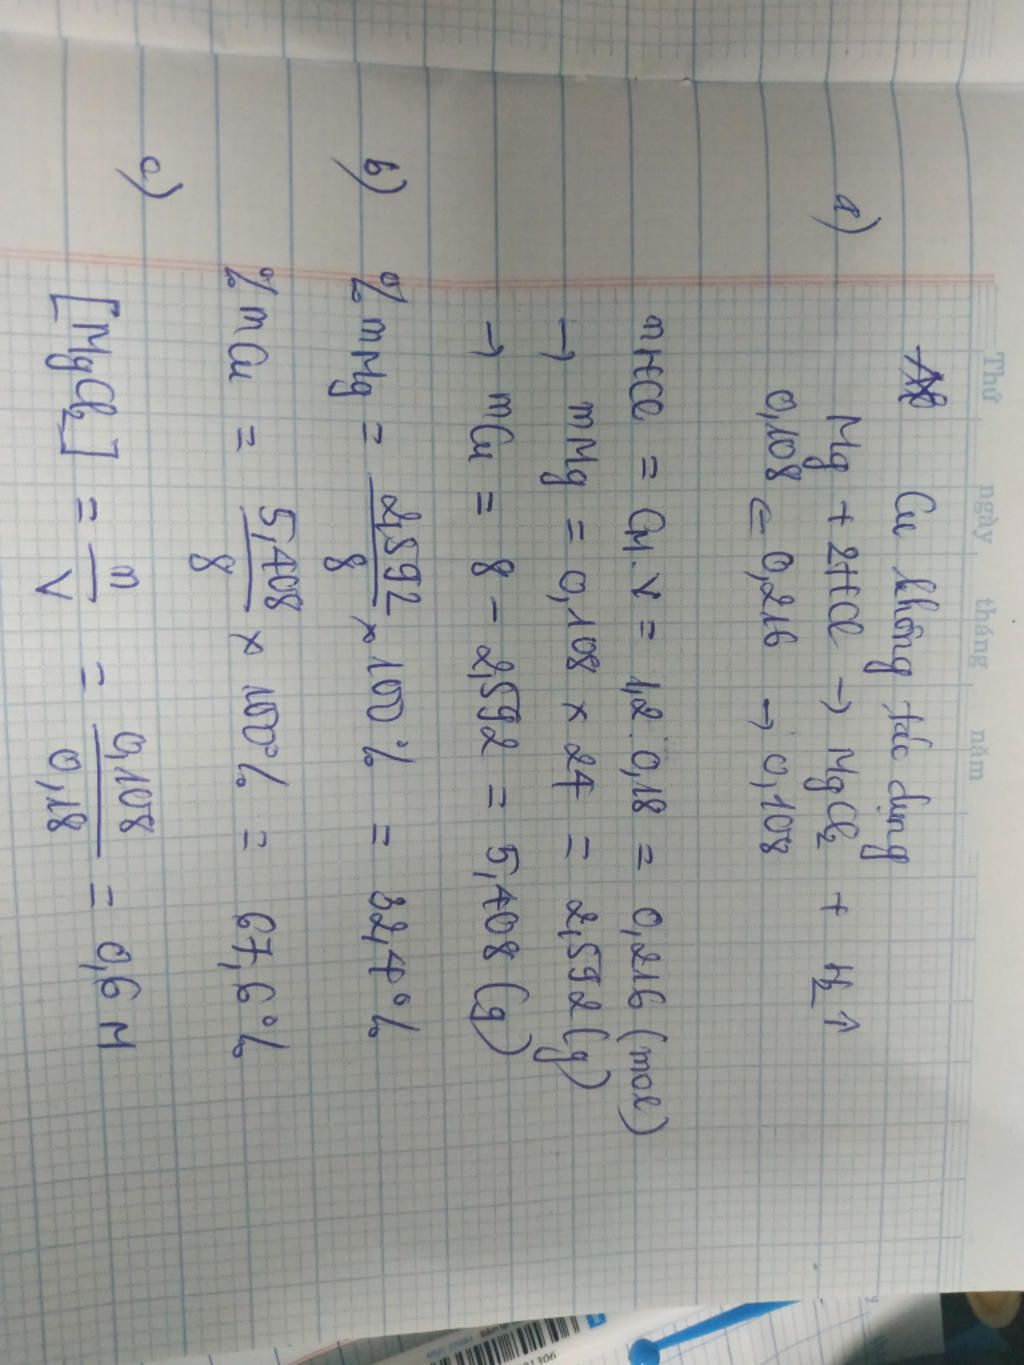 Thứ ngày tháng năm
Cu không tác dụng
a) Mg + 2HCl → MgCl₂ + H₂↑
0,108 ← 0,216 → 0,108
nHCl = CM.V = 1,2.0,18 = 0,216 (mol)
→ mMg = 0,108 × 24 = 2,592 (g)
→ mCu = 8 - 2,592 = 5,408 (g)
b) %mMg = 2,592/8 × 100% = 32,4%
%mCu = 5,408/8 × 100% = 67,6%
c) [MgCl₂] = n/V = 0,108/0,18 = 0,6 M